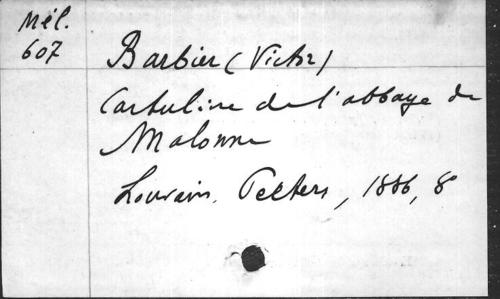 Mél.
607
Barbier (Victor)
Cartulaire de l'abbaye de
Malonne
Louvain, Peeters, 1886, 8°